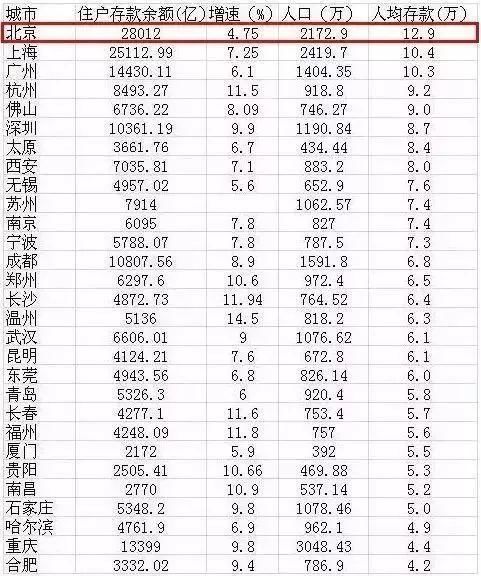 城市 住户存款余额(亿) 增速 (%) 人口 (万) 人均存款(万)
北京 28012 4.75 2172.9 12.9
上海 25112.99 7.25 2419.7 10.4
广州 14430.11 6.1 1404.35 10.3
杭州 8493.27 11.5 918.8 9.2
佛山 6736.22 8.09 746.27 9.0
深圳 10361.19 9.9 1190.84 8.7
太原 3661.76 6.7 434.44 8.4
西安 7035.81 7.1 883.2 8.0
无锡 4957.02 5.6 652.9 7.6
苏州 7914 1062.57 7.4
南京 6095 7.8 827 7.4
宁波 5788.07 7.8 787.5 7.3
成都 10807.56 8.9 1591.8 6.8
郑州 6297.6 10.6 972.4 6.5
长沙 4872.73 11.94 764.52 6.4
温州 5136 14.5 818.2 6.3
武汉 6606.01 9 1076.62 6.1
昆明 4124.21 7.6 672.8 6.1
东莞 4943.56 6.8 826.14 6.0
青岛 5326.3 6 920.4 5.8
长春 4277.1 11.6 753.4 5.7
福州 4248.09 11.8 757 5.6
厦门 2172 5.9 392 5.5
贵阳 2505.41 10.66 469.88 5.3
南昌 2770 10.9 537.14 5.2
石家庄 5348.2 9.8 1078.46 5.0
哈尔滨 4761.9 6.9 962.1 4.9
重庆 13399 9.8 3048.43 4.4
合肥 3332.02 9.4 786.9 4.2